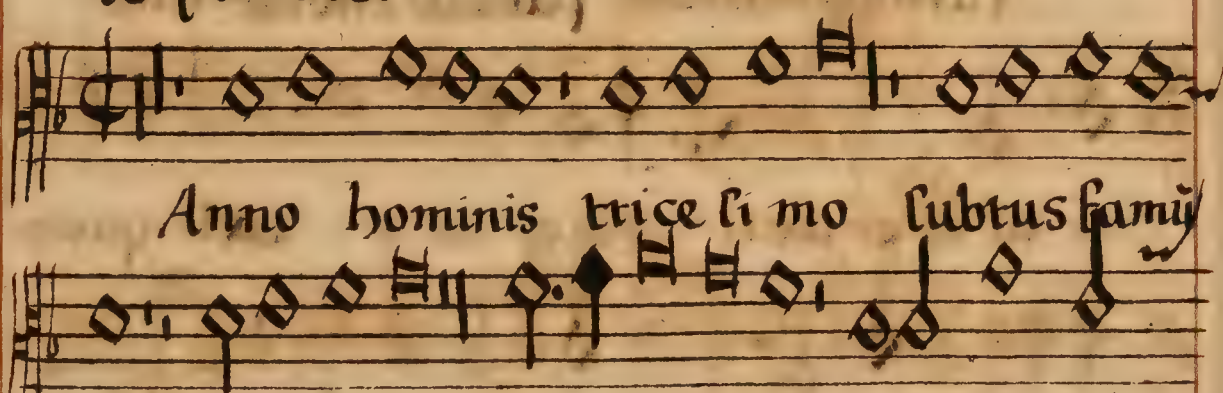 Anno hominis tricesimo subtus famũ